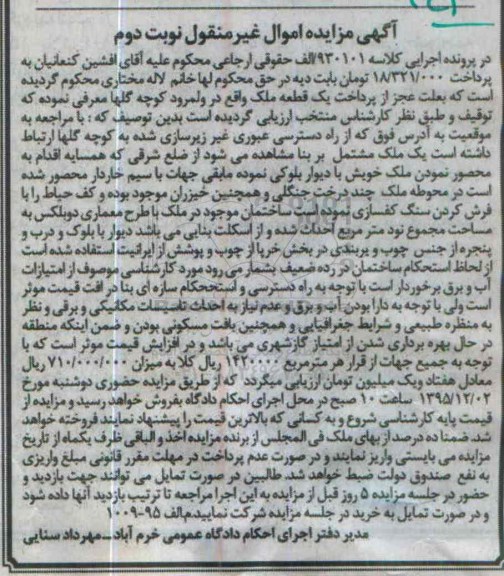 آگهی مزایده اموال غیر منقول نوبت دوم
در پرونده اجرایی کلاسه ۹۳۰۱۰۱/الف حقوقی ارجاعی محکوم علیه آقای افشین کنعانیان به
پرداخت ۱۸/۳۲۱/۰۰۰ تومان بابت دیه در حق محکوم لها خانم لاله مختاری محکوم گردیده
است که بعلت عجز از پرداخت یک قطعه ملک واقع در ولمرود کوچه گلها معرفی نموده که
توقیف و طبق نظر کارشناس منتخب ارزیابی گردیده است بدین توصیف که : با مراجعه به
موقعیت به آدرس فوق که از راه دسترسی عبوری غیر زیرسازی شده به کوچه گلها ارتباط
داشته است یک ملک مشتمل بر بنا مشاهده می شود از ضلع شرقی که همسایه اقدام به
محصور نمودن ملک خویش با دیوار بلوکی نموده مابقی جهات با سیم خاردار محصور شده
است در محوطه ملک چند درخت جنگلی و همچنین خیزران موجود بوده و کف حیاط را با
فرش کردن سنگ کفسازی نموده است ساختمان موجود در ملک با طرح معماری دوبلکس به
مساحت مجموع نود متر مربع احداث شده و از اسکلت بنایی می باشد دیوار با بلوک و درب و
پنجره از جنس چوب و پربندی در بخش خرپا از چوب و پوشش از ایرانیت استفاده شده است
از لحاظ استحکام ساختمان در رده ضعیف بشمار می رود مورد کارشناسی موصوف از امتیازات
آب و برق برخوردار است با توجه به راه دسترسی و استححکام سازه ای بنا در افت قیمت موثر
است ولی با توجه به دارا بودن آب و برق و عدم نیاز به احداث تاسیسات مکانیکی و برقی و نظر
به منظره طبیعی و شرایط جغرافیایی و همچنین بافت مسکونی بودن و ضمن اینکه منطقه
در حال بهره برداری شدن از امتیاز گازشهری می باشد و در افزایش قیمت موثر است که با
توجه به جمیع جهات از قرار هر مترمربع ۱۴۲۰۰۰۰ ریال کلا به میزان ۷۱۰/۰۰۰/۰۰۰ ریال
معادل هفتاد ویک میلیون تومان ارزیابی میگردد که از طریق مزایده حضوری دوشنبه مورخ
۱۳۹۵/۱۲/۰۲ ساعت ۱۰ صبح در محل اجرای احکام دادگاه بفروش خواهد رسید و مزایده از
قیمت پایه کارشناسی شروع و به کسانی که بالاترین قیمت را پیشنهاد نمایند فروخته خواهد
شد. ضمنا ده درصد از بهای ملک فی المجلس از برنده مزایده اخذ و الباقی ظرف یکماه از تاریخ
مزایده می بایستی واریز نمایند و در صورت عدم پرداخت در مهلت مقرر قانونی مبلغ واریزی
به نفع صندوق دولت ضبط خواهد شد. طالبین در صورت تمایل می توانند جهت بازدید و
حضور در جلسه مزایده ۵ روز قبل از مزایده به این اجرا مراجعه تا ترتیب بازدید آنها داده شود
و در صورت تمایل به خرید در جلسه مزایده شرکت نمایید.م.الف ۹۵-۱۰۰۹
مدیر دفتر اجرای احکام دادگاه عمومی خرم آباد_مهرداد سنایی